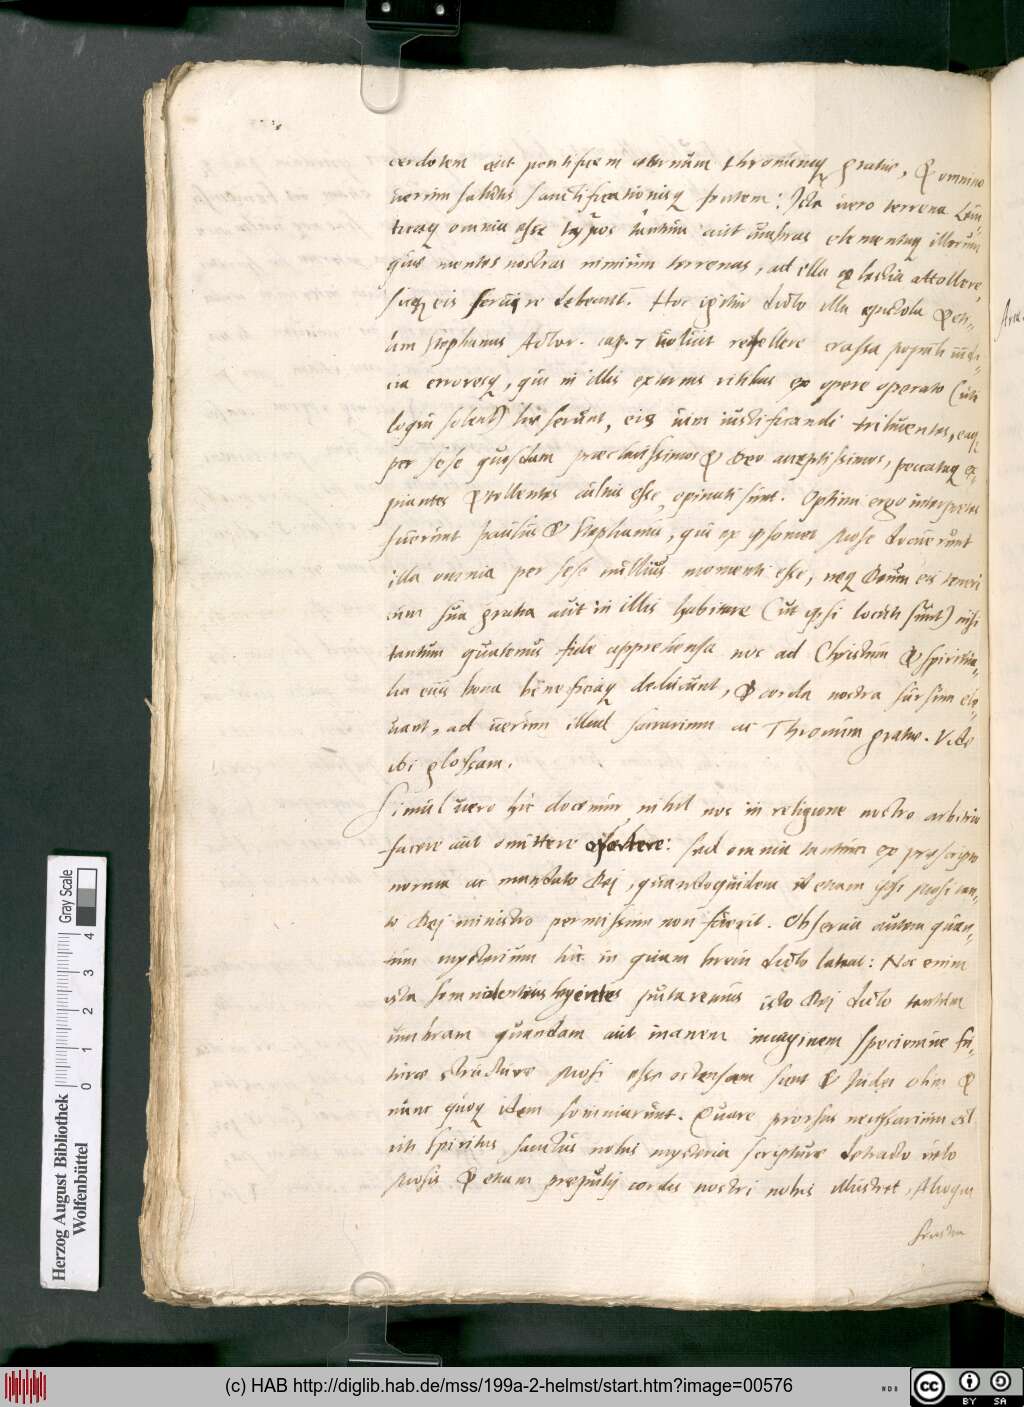 cerdotem aut pontificem aeternum thronumq gratiae, & omnino
verum salutis sanctificationisq fontem: Ista vero terrena
omnia esse typos tantum aut umbras elementaq illorum
quae mentes nostras nimium terrenas, ad illa coelestia attollere,
sicq eis servire debeant. Hoc igitur dicto illa epistola & eti-
am Stephanus Actor. cap. 7 voluit refellere crassa populi iudi-
cia erroresq, qui in illis externis ritibus ex opere operato (uti
loqui solent) haeserunt, eis vim iustificandi tribuentes, eaq
per sese quosdam praeclarissimos & Deo acceptissimos, peccatuq ex-
piantes & tollentes cultus esse, opinati sunt. Optimi ergo interpretes
fuerunt Paulus & Stephanus, qui ex ipsomet Mose docuerunt
illa omnia per sese nullius momenti esse, neq Deum eis teneri
cum sua gratia aut in illis habitare (ut ipsi locuti sunt) nisi
tantum quatenus fide apprehensa nos ad Christum & spiritua-
lia eius bona beneficiaq deducunt, & corda nostra sursum ele-
vant, ad verum illud sacrarium ac Thronum gratiae. Vide
ibi glossam.
Simul vero hic docemur nihil nos in religione nostro arbitrio
facere aut omittere debere: sed omnia tantum ex praescripto
norma ac mandato Dei, quandoquidem id etiam ipsi Mosi tan-
to Dei ministro permissum non fuerit. Observa autem quan-
tum mysterium hic in quam brevi dicto lateat: Nos enim
ista somnolentius legentes putaremus isto Dei dicto tantum
umbram quandam aut inanem imaginem speciemve fu-
turae structurae Mosi esse ostensam sicut & Iudei olim &
nunc quoq idem somniarunt. Quare prorsus necessarium est
ut Spiritus sanctus nobis mysteria scripturae detracto velo
Mosis & etiam praeputij cordis nostri nobis illustret, Alioqui
frustra
Herzog August Bibliothek
Wolfenbüttel
Gray Scale
0 1 2 3 4
(c) HAB http://diglib.hab.de/mss/199a-2-helmst/start.htm?image=00576
cc BY SA